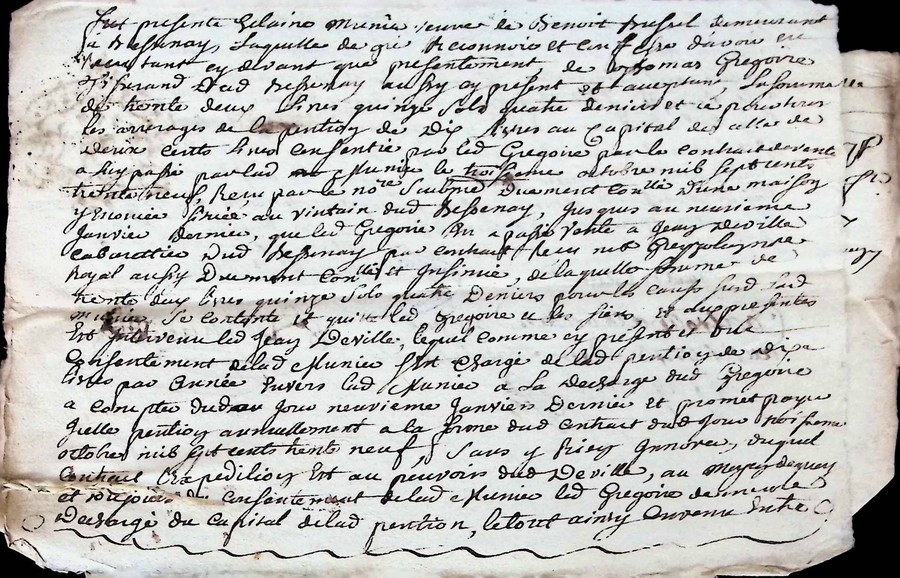 Fut presente Helaine Munie veuve de Benoit Bussel demeurant
a Bessenay, Laquelle de gre Reconnoit et confesse d'avoir eu
Receu tant cy devant que presentement de Thomas Gregoire
Tisserand dud Bessenay aussy cy present et acceptant, La somme
de trente deux Livres quinze sols quatre deniers et ce pour
les arrerages de la pention de dix Livres au Capital de celle de
deux cents Livres consentie par led Gregoire par le contract de vente
a luy passé par lad Munie le troisieme octobre mil sept cents
trente neuf, Receu par le nore Soubné duement conllé d'une maison
y enoncée scituée au vintain dud Bessenay, jusques au neuvieme
Janvier dernier, que led Gregoire en a passé vente a Jean Deville
cabarettier dud Bessenay par contract Receu me notaire
Royal aussy Duement conllé et Insinué, de laquelle somme de
trente deux Livres quinze sols quatre Deniers pour les causes susd Lad
Munie se contente et quitte led Gregoire et les siens Et aux presentes
Est intervenu led Jean Deville, lequel comme cy présent et du
Consentement delad Munier s'est Chargé de lad pention de dix
Livres par année Envers lad Munier a La decharge dud Gregoire
a compter dud jour neuvieme Janvier Dernier et promet payer
Icelle pention annuellement a la forme dud contract dud jour troisieme
octobre mil sept cents trente neuf, Sans y Rien Innover, duquel
Contract L'expedition Est au pouvoir dud Deville, au moyen de quoy
et du consentement delad Munier led Gregoire demeure
Dechargé du Capital delad pention, le tout ainsy convenu Entre